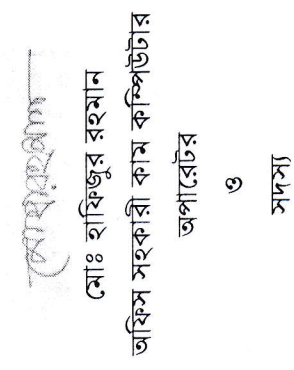 মোঃ হাফিজুর রহমান
অফিস সহকারী কাম কম্পিউটার
অপারেটর
ও
সদস্য